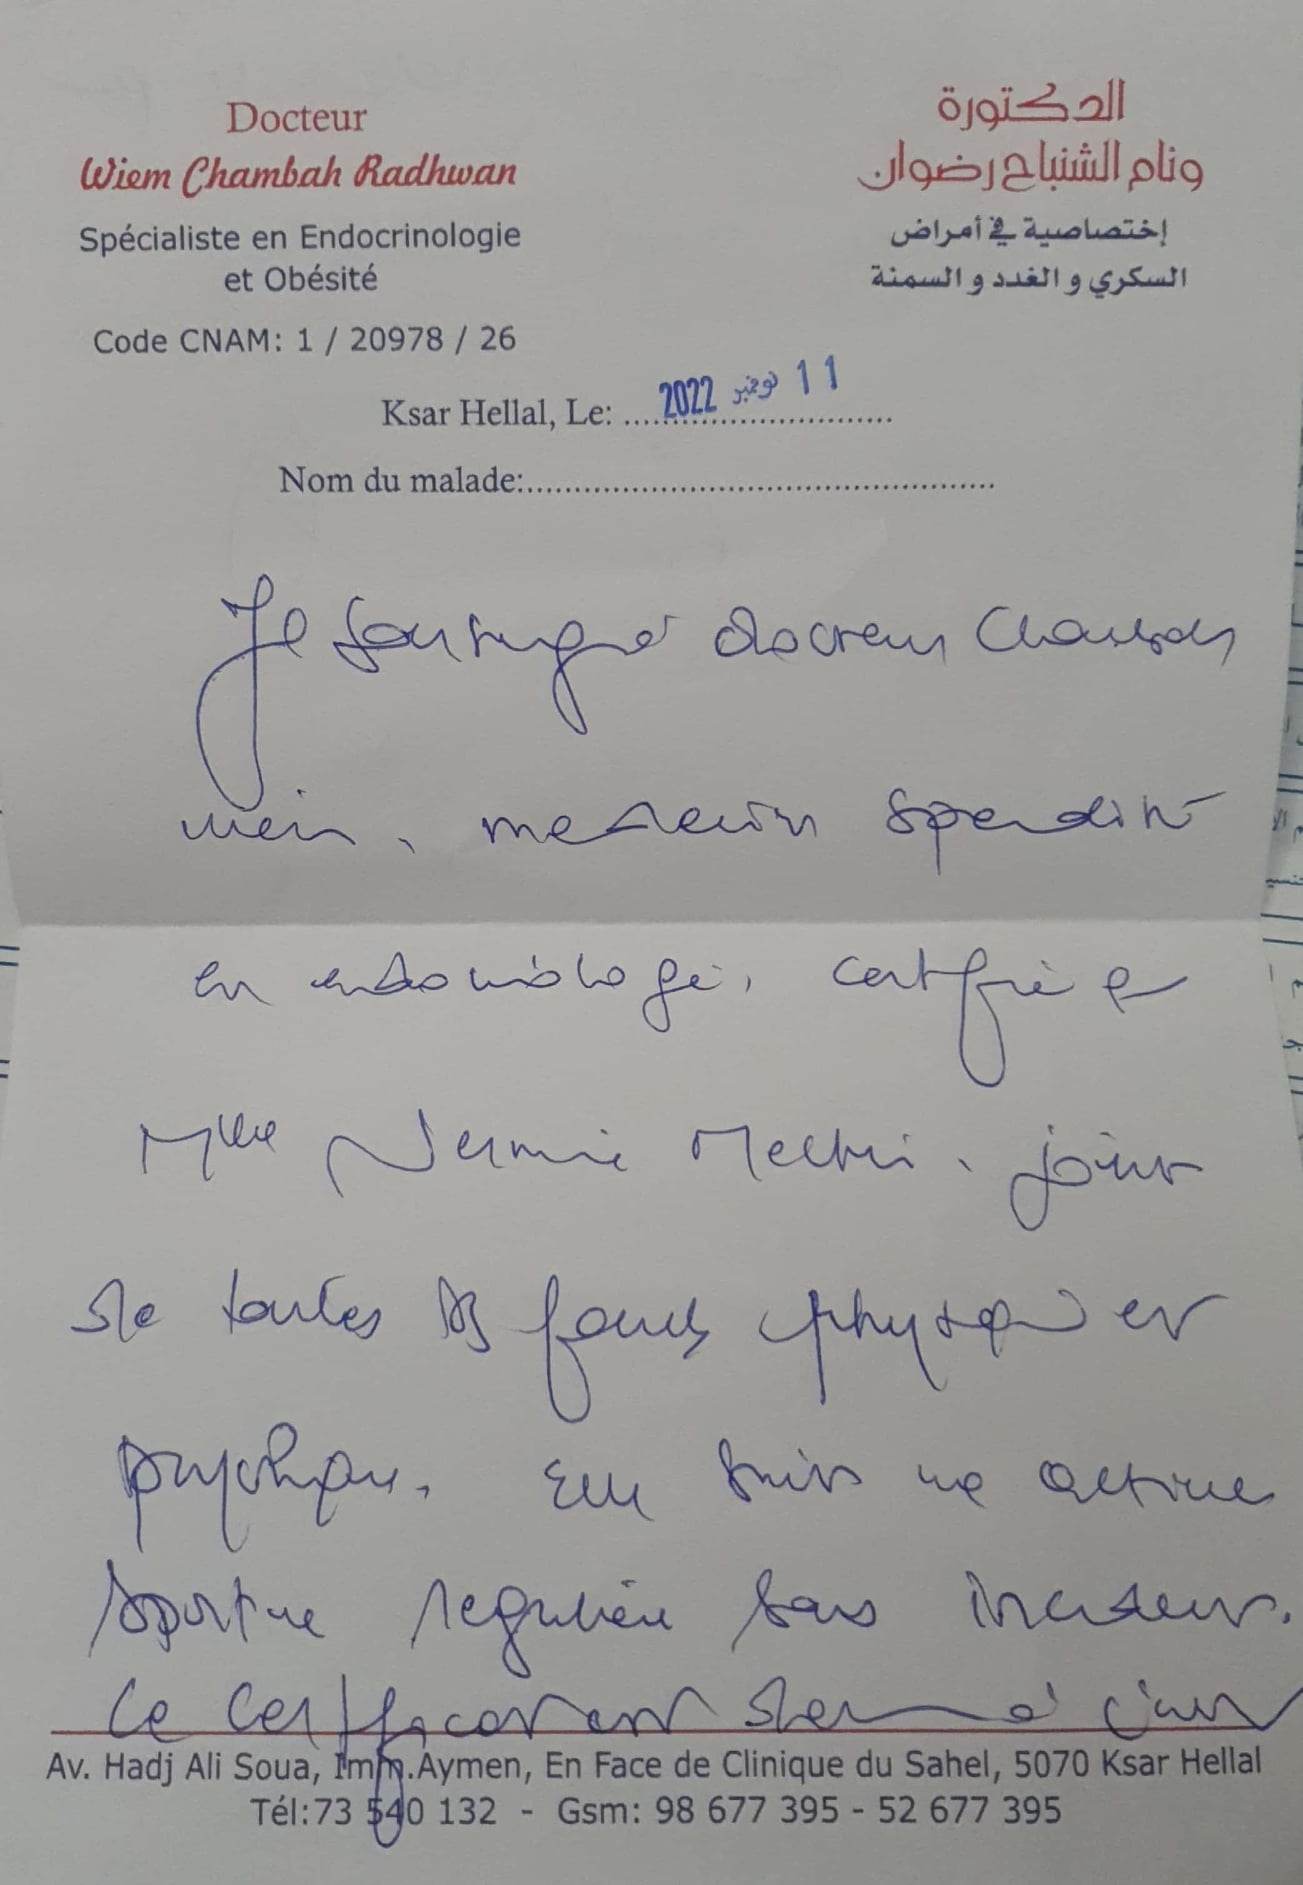 Docteur
Wiem Chambah Radhwan
Spécialiste en Endocrinologie
et Obésité
Code CNAM: 1 / 20978 / 26
الدكتورة
وئام الشنباح رضوان
إختصاصية في أمراض
السكري و الغدد و السمنة
Ksar Hellal, Le: 11 نوفمبر 2022
Nom du malade:
Je soussigné docteur Chambah
Wiem, médecin spécialiste
en endocrinologie, certifie
Mlle Nermine Mechri, jouir
de toutes ses facultés physique et
psychique. Elle suit une activité
sportive régulière sans incident.
Ce certificat est
Av. Hadj Ali Soua, Imm.Aymen, En Face de Clinique du Sahel, 5070 Ksar Hellal
Tél:73 540 132 - Gsm: 98 677 395 - 52 677 395